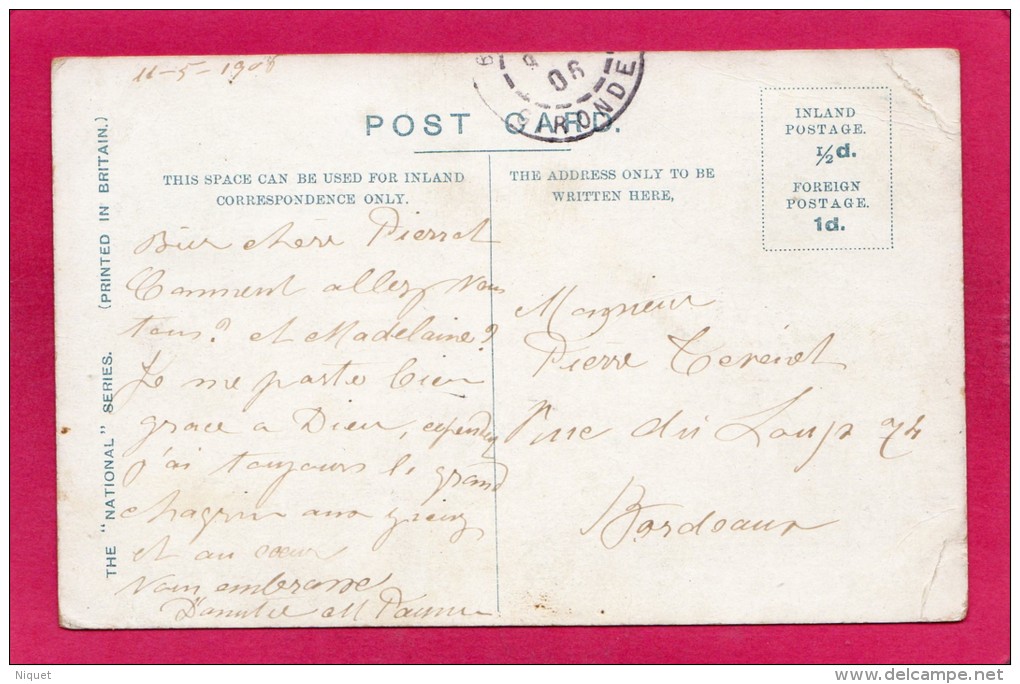 11-5-1908
06
GIRONDE
POST CARD.
THIS SPACE CAN BE USED FOR INLAND
CORRESPONDENCE ONLY.
THE ADDRESS ONLY TO BE
WRITTEN HERE,
INLAND
POSTAGE.
½d.
FOREIGN
POSTAGE.
1d.
THE "NATIONAL" SERIES. (PRINTED IN BRITAIN.)
Bien chere Pierrot
Comment allez Vous
tous? et Madelaine?
Je me porte bien
grace a Dieu, cependez
j'ai toujours le grand
chagrin aux yieux
et au cœur
Vous embrasse
Monsieur
Pierre
rue du Loup 74
Bordeaux
Niquet
delcampe.net